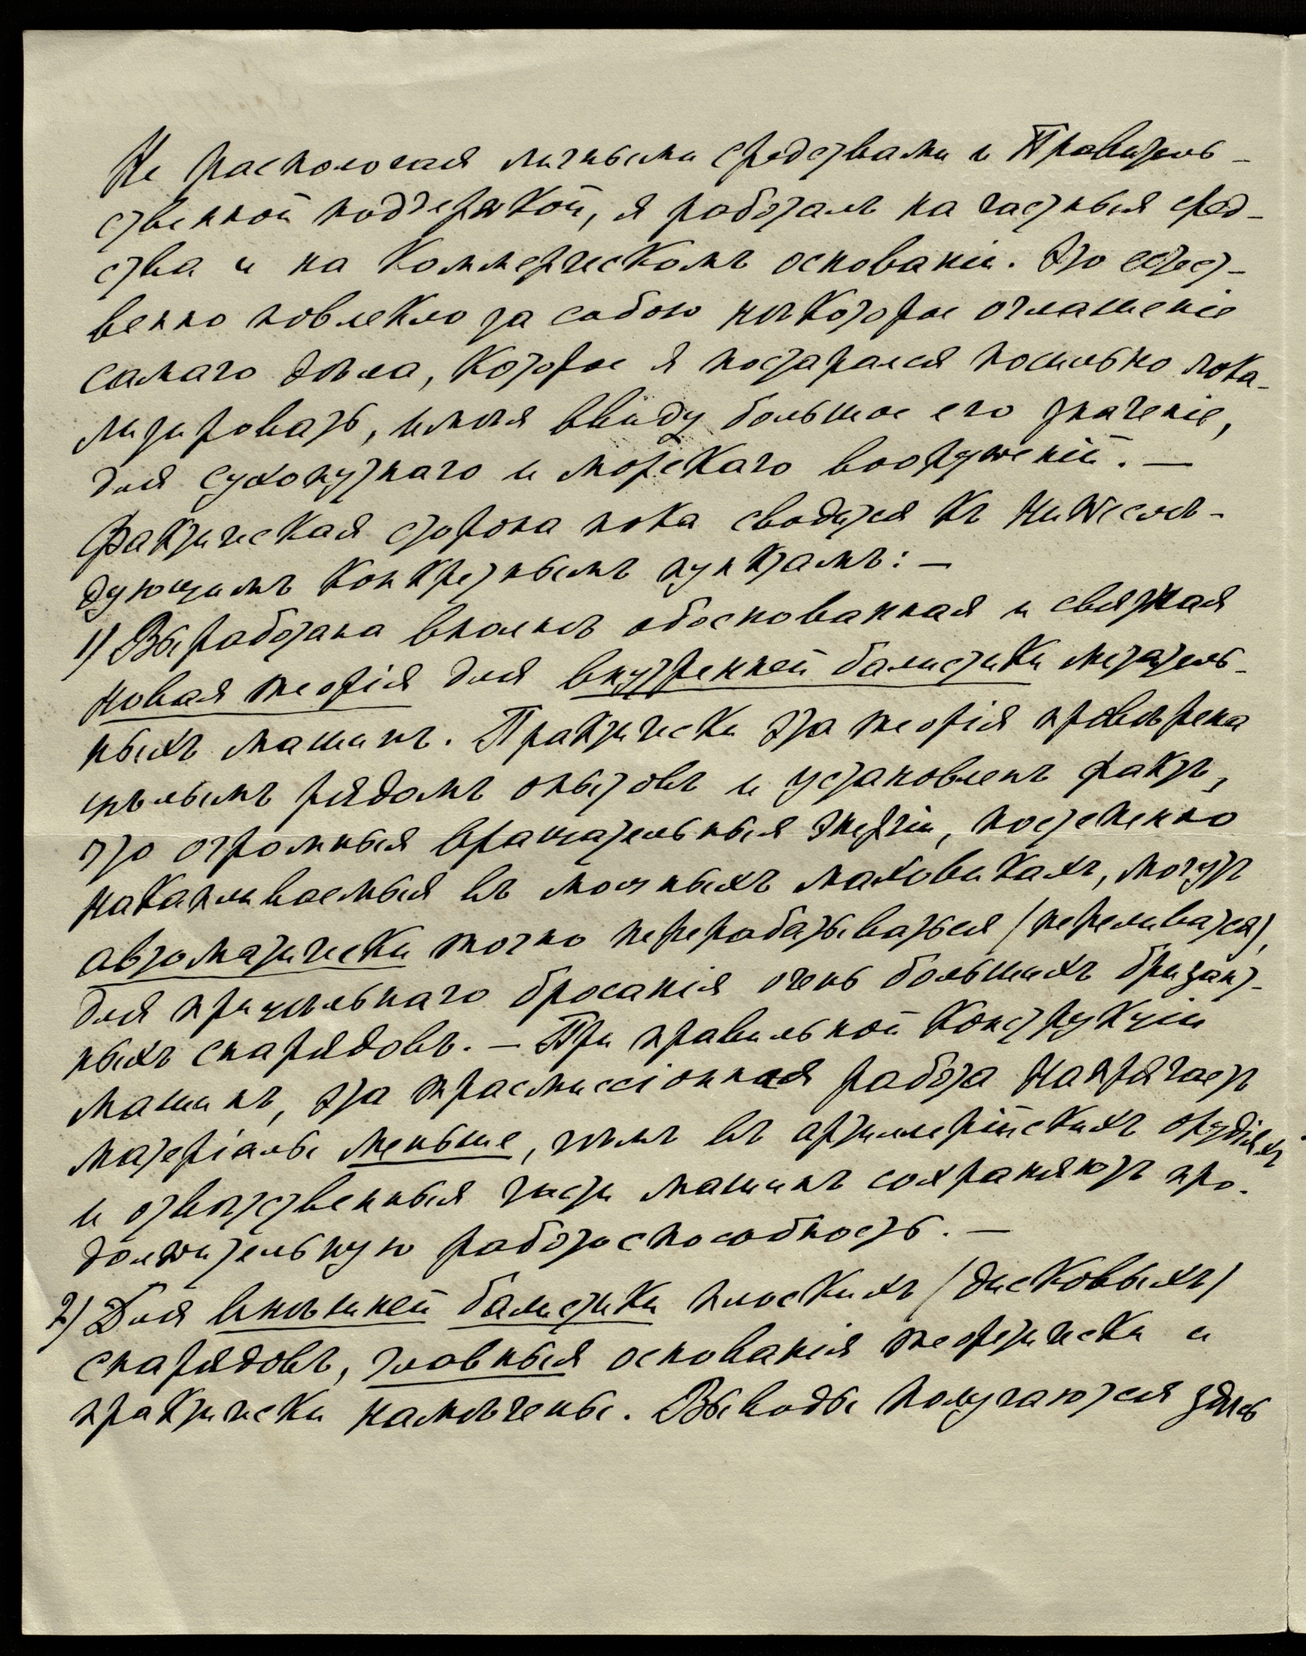 Не распологая личными средствами и Правитель-
ственной поддержкой, я работалъ на частныя сред-
ства и на коммерческомъ основаніи. Это естест-
венно повлекло за собою нѣкоторое оглашеніе
самаго дѣла, которое я постарался посильно лока-
лизировать, имѣя ввиду большое его значеніе,
для сухопутнаго и морскаго вооруженій. —
Фактическая сторона пока сводится къ нижеслѣ-
дующимъ конкретнымъ пунктамъ: —
1) Выработана вполнѣ обоснованная и связная
новая теорія для внутренней балистики метатель-
ныхъ машинъ. Практически эта теорія провѣрена
цѣлымъ рядомъ опытовъ и установленъ фактъ,
что огромныя вращательныя энергіи, постепенно
накапливаемыя въ мощныхъ маховикахъ, могутъ
автоматически точно перерабатываться (переливатся),
для прицѣльнаго бросанія очень большихъ бризант-
ныхъ снарядовъ. — При правильной конструкціи
машинъ, эта трасмиссіонная работа напрягаетъ
матеріалы меньше, чѣмъ въ артиллерійскихъ орудіяхъ
и отвѣтственныя части машинъ сохраняютъ про-
должительную работоспособность. —
2) Для внѣшней балистики плоскихъ (дисковыхъ)
снарядовъ, главныя основанія теоретически и
практически намѣчены. Выводы получаются здѣсь